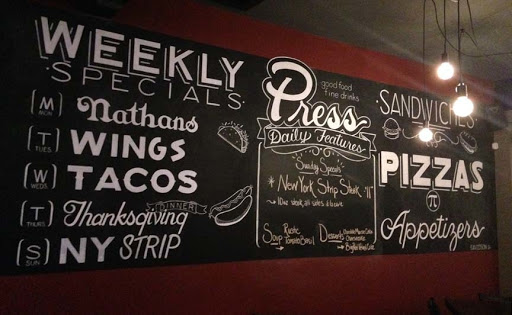 WEEKLY
SPECIALS
M MON Nathans
T TUES WINGS
W WEDS TACOS
T THURS Thanksgiving DINNER!
S SUN NY STRIP
good food
fine drinks
Press
Daily Features
Sunday Specials
* New York Strip Steak 11
10oz steak, all sides à la carte
Soup Rustic
Tomato
Desserts
Cheesecake
SANDWICHES
PIZZAS
π
Appetizers